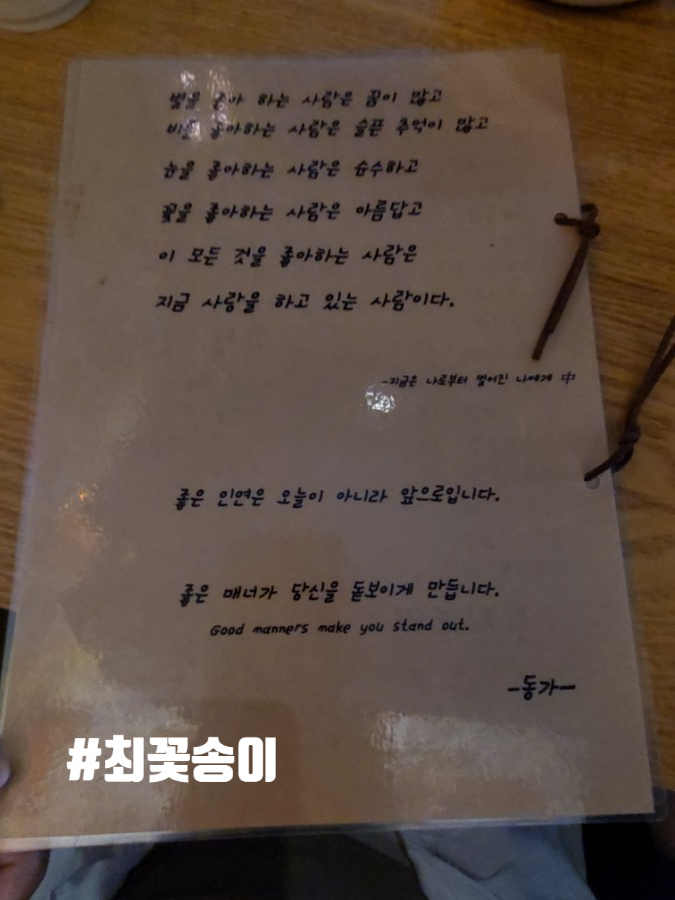 별을 좋아 하는 사람은 꿈이 많고
비를 좋아하는 사람은 슬픈 추억이 많고
눈을 좋아하는 사람은 순수하고
꽃을 좋아하는 사람은 아름답고
이 모든 것을 좋아하는 사람은
지금 사랑을 하고 있는 사람이다.
-지금은 나로부터 멀어진 나에게 中
좋은 인연은 오늘이 아니라 앞으로입니다.
좋은 매너가 당신을 돋보이게 만듭니다.
Good manners make you stand out.
-동가-
#최꽃송이